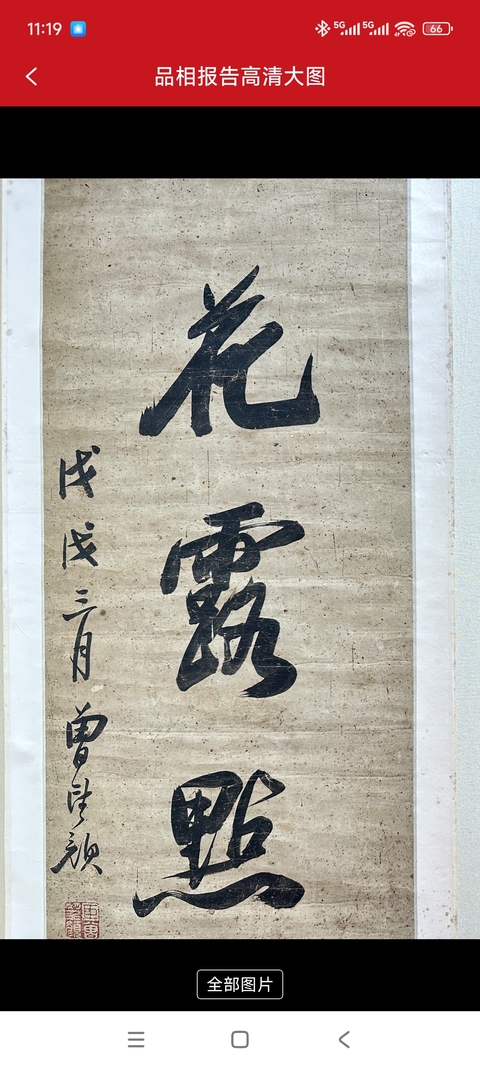 11:19
5G
5G
66
品相报告高清大图
花露點
戊戌三月曾望颜
全部图片